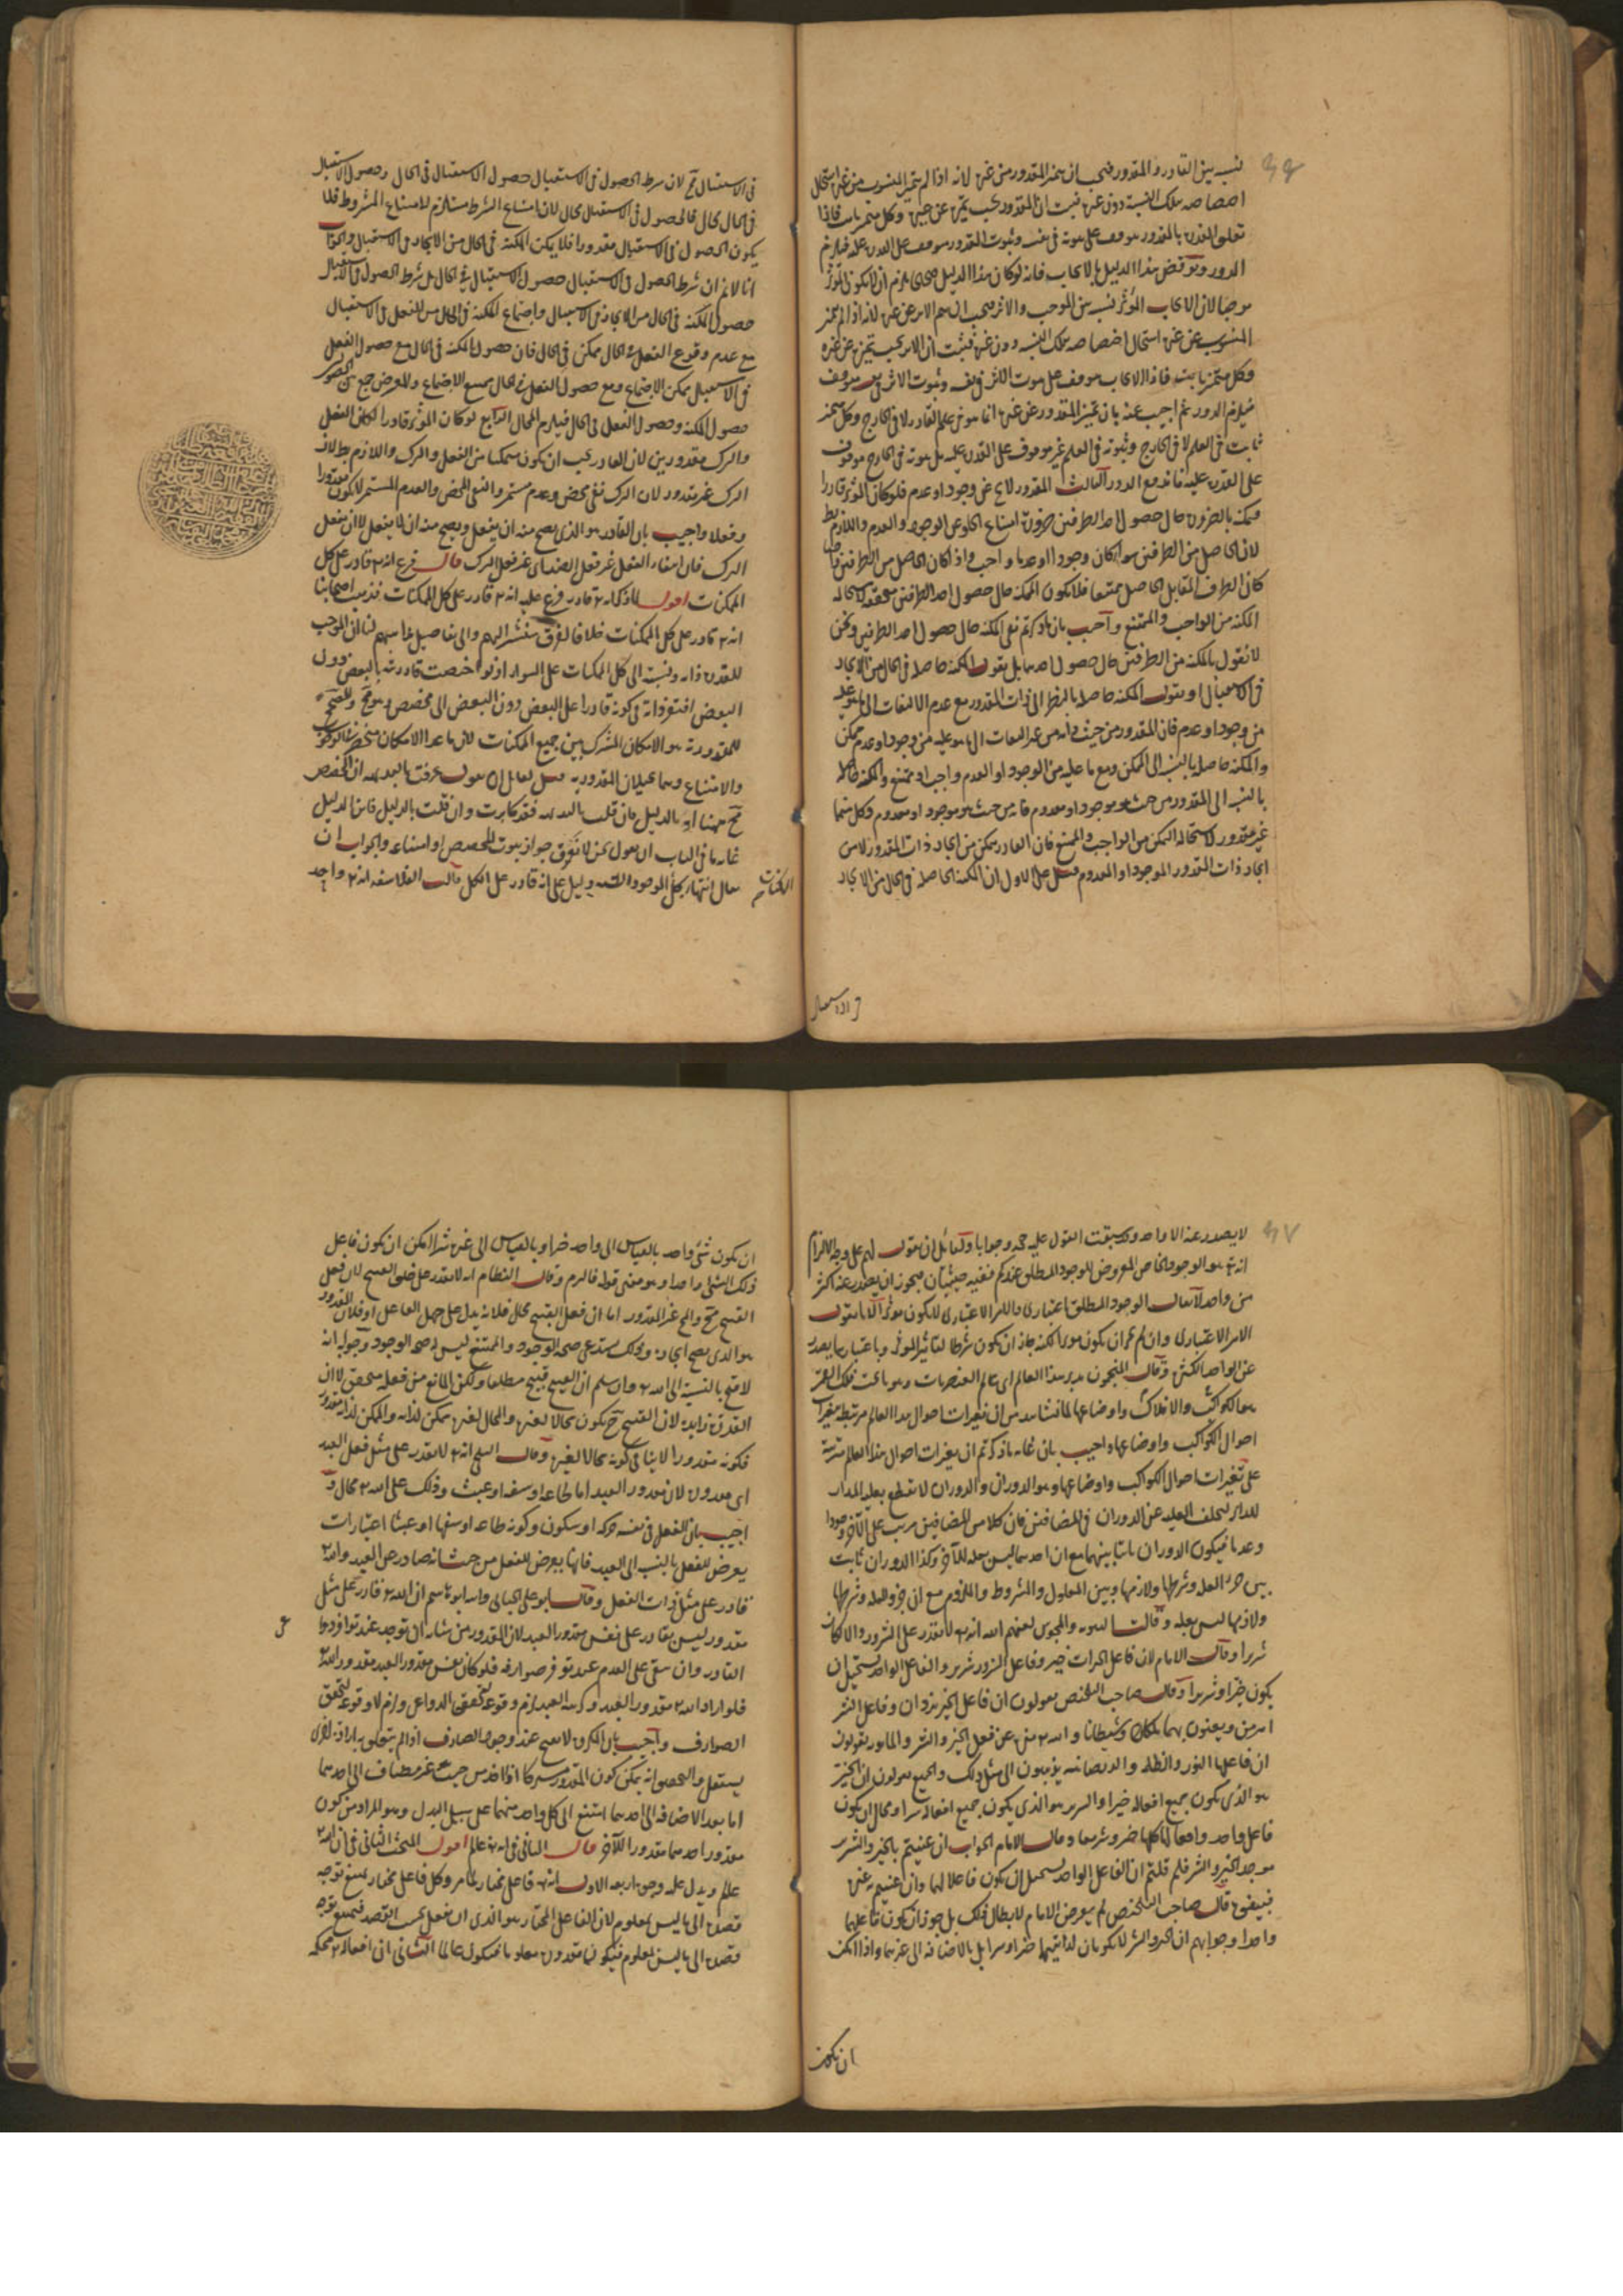 نسبة بين القادر والمقدور فيجب ان يتميز المقدور من غيره لانه اذا لم يتميز المنسوب من غيره استحال
اختصاصه بتلك النسبة دون غيره فثبت ان المقدور يجب تميزه عن غيره وكل متميز ثابت فاذا
تعلق القدرة بالمقدور موقوف على ثبوته في نفسه وثبوت المقدور موقوف على القدرة عليه فيلزم
الدور ونوقض هذا الدليل بالايجاب فانه لو كان هذا الدليل صحيحا يلزم ان لا يكون المؤثر
موجبا لان الايجاب المؤثر نسبة بين الموجب والاثر فيجب ان يتميز الاثر عن غيره لانه اذا لم يتميز
المنسوب عن غيره استحال اختصاصه بتلك النسبة دون غيره فثبت ان الاثر يجب تميزه عن غيره
وكل متميز ثابت فاذا الايجاب موقوف على ثبوت الاثر في نفسه وثبوت الاثر موقوف
فيلزم الدور ثم اجيب عنه بان تميز المقدور عن غيره انما هو في علم القادر لا في الخارج وكل متميز
ثابت في العلم لا في الخارج وثبوته في العلم غير موقوف على القدرة عليه بل ثبوته في الخارج موقوف
على القدرة عليه فاندفع الدور الثالث المقدور لا يخ عن وجود او عدم فلو كان المؤثر قادرا
فتمكنه بالطرفين حال حصول احد الطرفين ضرورة امتناع الخلو عن الوجود والعدم واللازم بط
لان الحاصل من الطرفين سواء كان وجودا او عدما واجب واذا كان الحاصل من الطرفين واجبا
كان الطرف المقابل الحاصل ممتنعا فلا يكون المكنة حال حصول احد الطرفين متحققة لاستحالة
المكنة من الواجب والممتنع واجيب بان ما ذكرتم نفي المكنة حال حصول احد الطرفين ونحن
لا نقول بالمكنة من الطرفين حال حصول احدهما بل نقول المكنة حاصلة في الحال من الايجاد
في الاستقبال او نقول المكنة حاصلة بالنظر الى ذات المقدور مع عدم الالتفات الى ما هو عليه
من وجود او عدم فان المقدور من حيث ذاته من غير التفات الى ما هو عليه من وجود او عدم ممكن
والمكنة حاصلة بالنسبة الى الممكن ومع ما عليه من الوجود او العدم واجب او ممتنع والمكنة حاصلة
بالنسبة الى المقدور من حيث هو موجود او معدوم فانه من حيث هو موجود او معدوم وكل منهما
غير مقدور لاستحالة التمكن من الواجب والممتنع فان القادر متمكن من ايجاد ذات المقدور لا من
ايجاد ذات المقدور الموجود او المعدوم قيل على الاول ان المكنة الحاصلة في الحال من الايجاد
في الاستقبال
في الاستقبال مح لان شرط الحصول في الاستقبال حصول الاستقبال في الحال وحصول الاستقبال
في الحال محال فالحصول في الاستقبال محال لان امتناع الشرط مستلزم لامتناع المشروط فلا
يكون الحصول في الاستقبال مقدورا فلا يكن المكنة في الحال من الايجاد في الاستقبال والجواب
انا لا نم ان شرط الحصول في الاستقبال حصول الاستقبال في الحال بل شرط الحصول في الاستقبال
حصول المكنة في الحال من الايجاد في الاستقبال واجتماع المكنة في الحال من الفعل في الاستقبال
مع عدم وقوع الفعل في الحال ممكن في الحال فان حصول المكنة في الحال مع حصول الفعل
في الاستقبال ممكن الاجتماع ومع حصول الفعل في الحال ممتنع الاجتماع والمعترض جمع بين
حصول المكنة وحصول الفعل في الحال فيلزم المحال الرابع لو كان المؤثر قادرا لكان الفعل
والترك مقدورين لان القادر يجب ان يكون متمكنا من الفعل والترك واللازم بط لان
الترك غير مقدور لان الترك نفي محض وعدم مستمر والنفي المحض والعدم المستمر لا يكون مقدورا
وفعلا واجيب بان القادر هو الذي يصح منه ان يفعل ويصح منه ان لا يفعل لا ان يفعل
الترك فان انتفاء الفعل غير فعل الضد اي غير فعل الترك قال فرع انه تع قادر على كل
الممكنات اقول لما ذكر انه تع قادر فرع عليه انه تع قادر على كل الممكنات فذهب اصحابنا
انه تع قادر على كل الممكنات خلافا لفرق ستشير اليهم والى تفاصيل مذاهبهم لنا ان الموجب
للقدرة ذاته ونسبته الى كل الممكنات على السواء اذ لو اختصت قادريته بالبعض دون
البعض افتقر ذاته في كونه قادرا على البعض دون البعض الى مخصص وهو مح والمصحح
للمقدورية هو الامكان المشترك بين جميع الممكنات لان ما عدا الامكان منحصر في الوجوب
والامتناع وهما يحيلان المقدورية قيل لقائل ان يقول عرفت بالبديهة ان المخصص
مح ههنا او بالدليل فان قلت بالبديهة فقد كابرت وان قلت بالدليل فاين الدليل
غاية ما في الباب ان نقول نحن لا نعرف جواز ثبوت المخصص او امتناعه والجواب ان
يقال انتهاء كل الموجودات اليه دليل على انه قادر على الكل قالت الفلاسفة انه تع واحد
الممكنات
لا يصدر عنه الا واحد وقد سبقت القول عليه حجة وجوابا ولقائل ان يقول لهم على وجه الالزام
انه تع هو الوجود الخاص المعروض للوجود المطلق عندكم ففيه حيثيتان فيجوز ان يصدر عنه اكثر
من واحد لا يقال الوجود المطلق اعتباري والامر الاعتباري لا يكون مؤثرا لانا نقول
الامر الاعتباري وان لم يجز ان يكون مؤثرا لكنه جاز ان يكون شرطا لتاثير المؤثر وباعتبارها يصدر
عن الواحد الكثير وقال المنجمون مدبر هذا العالم اي عالم العنصريات وهو ما تحت فلك القمر
هو الكواكب والافلاك واوضاعها لما نشاهد من ان تغيرات احوال هذا العالم مرتبطة بتغيرات
احوال الكواكب واوضاعها واجيب بان غاية ما ذكرتم ان تغيرات احوال هذا العالم مترتبة
على تغيرات احوال الكواكب واوضاعها وهو الدوران والدوران لا يقطع بعلية المدار
للدائر لتخلف العلية عن الدوران في المتضائفين فان كلا من المتضائفين مرتب على الآخر وجودا
وعدما فيكون الدوران ثابتا بينهما مع ان احدهما ليس بعلة للآخر وكذا الدوران ثابت
بين جزء العلة وشرطها ولازمها وبين المعلول والمشروط والملزوم مع ان جزء العلة وشرطها
ولازمها ليس بعلة وقالت الثنوية والمجوس لعنهم الله انه تع لا يقدر على الشرور والا لكان
شريرا وقال الامام لان فاعل الخيرات خير وفاعل الشرور شرير والفاعل الواحد يستحيل ان
يكون خيرا وشريرا وقال صاحب التلخيص يقولون ان فاعل الخير يزدان وفاعل الشر
اهرمن ويعنون بهما ملكا وشيطانا والله تع منزه عن فعل الخير والشر والمانوية يقولون
ان فاعلهما النور والظلمة والديصانية يذهبون الى مثل ذلك والجميع يقولون ان الخير
هو الذي يكون جميع افعاله خيرا والشرير هو الذي يكون جميع افعاله شرا ومحال ان يكون
فاعل واحد وافعاله كلها خير وشر معا وقال الامام الجواب ان عنيتم بالخير والشر
موجد الخير والشر فلم قلتم ان الفاعل الواحد يستحيل ان يكون فاعلا لهما وان عنيتم به غيره
فبينوه قال صاحب التلخيص لم يعرض الامام لابطال ذلك بل جوز ان يكون فاعلهما
واحدا وجوابهم ان الخير والشر لا يكونان لذاتيهما خيرا وشرا بل بالاضافة الى غيرهما واذا امكن
ان يكون
ان يكون شيء واحد بالقياس الى واحد خيرا وبالقياس الى غيره شرا امكن ان يكون فاعل
ذلك الشيء واحدا وهو معنى قوله فالتزم وقال النظام انه لا يقدر على خلق القبيح لان فعل
القبيح مح والمح غير المقدور اما ان فعل القبيح محال فلانه يدل على جهل الفاعل او
هو الذي يصح ايجاده وذلك يستدعي صحة الوجود والممتنع ليس له صحة الوجود وجوابه انه
لا قبح بالنسبة الى الله تع وان سلم ان القبيح قبيح مطلقا ولكن المانع من فعله متحقق لا ان
القدرة زايلة لان القبيح ح يكون محالا لغيره والمحال لغيره ممكن لذاته والممكن لذاته مقدور
فكونه مقدورا لا ينافي كونه محالا لغيره وقال البلخي انه تع لا يقدر على مثل فعل العبد
اي مقدوره لان مقدور العبد اما طاعة او سفه او عبث وذلك على الله تع محال و
اجيب بان الفعل في نفسه حركة او سكون وكونه طاعة او سفها او عبثا اعتبارات
يعرض للفعل بالنسبة الى العبد فانها يعرض للفعل من حيث انه صادر عن العبد والله تع
قادر على مثل ذات الفعل وقال ابو علي الجبائي وابنه ابو هاشم ان الله تع قادر على مثل
مقدور ليس بقادر على نفس مقدور العبد لان المقدور من شانه ان يوجد عند توافر دواعي
القادر وان يبقى على العدم عند توفر صوارفه فلو كان نفس مقدور العبد مقدور الله تع
فلو اراد الله تع مقدور العبد وكرهه العبد لزم وقوعه لتحقق الدواعي ولزم لا وقوعه لتحقق
الصوارف واجيب بان المكروه لا يقع عند وجود الصارف اذا لم يتعلق به ارادة اخرى
يستقل والتحصيل انه يمكن كون المقدور مشتركا اذا اخذ من حيث هو غير مضاف الى احدهما
اما بعد الاضافة الى احدهما امتنع الى كل واحد منهما على سبيل البدل وهو المراد من كون
مقدور احدهما مقدورا للآخر قال الثاني في انه تع عالم اقول المبحث الثاني في ان الله تع
عالم ويدل عليه وجوه اربعة الاول انه تع فاعل مختار لما مر وكل فاعل مختار يمتنع توجه
قصده الى ما ليس بمعلوم لان الفاعل المختار هو الذي ان يفعل بحسب القصد فيمتنع توجه
قصده الى ما ليس بمعلوم فيكون مقدوره معلوما فيكون عالما الثاني ان افعاله تع محكمة